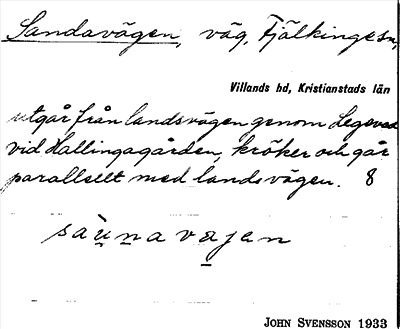 Sandavägen, väg, Fjälkinge sn,
Villands hd, Kristianstads län
utgår från landsvägen genom Legeved
vid Hallingagården, kröker och går
parallellt med landsvägen. 8
sàu̱na va̱jen
JOHN SVENSSON 1933